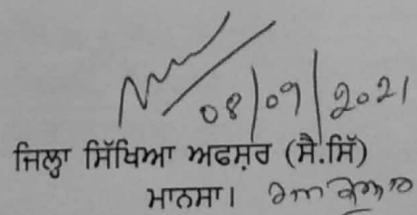 08/09/2021
ਜਿਲ੍ਹਾ ਸਿੱਖਿਆ ਅਫਸ਼ਰ (ਸੈ.ਸਿੱ)
ਮਾਨਸਾ।